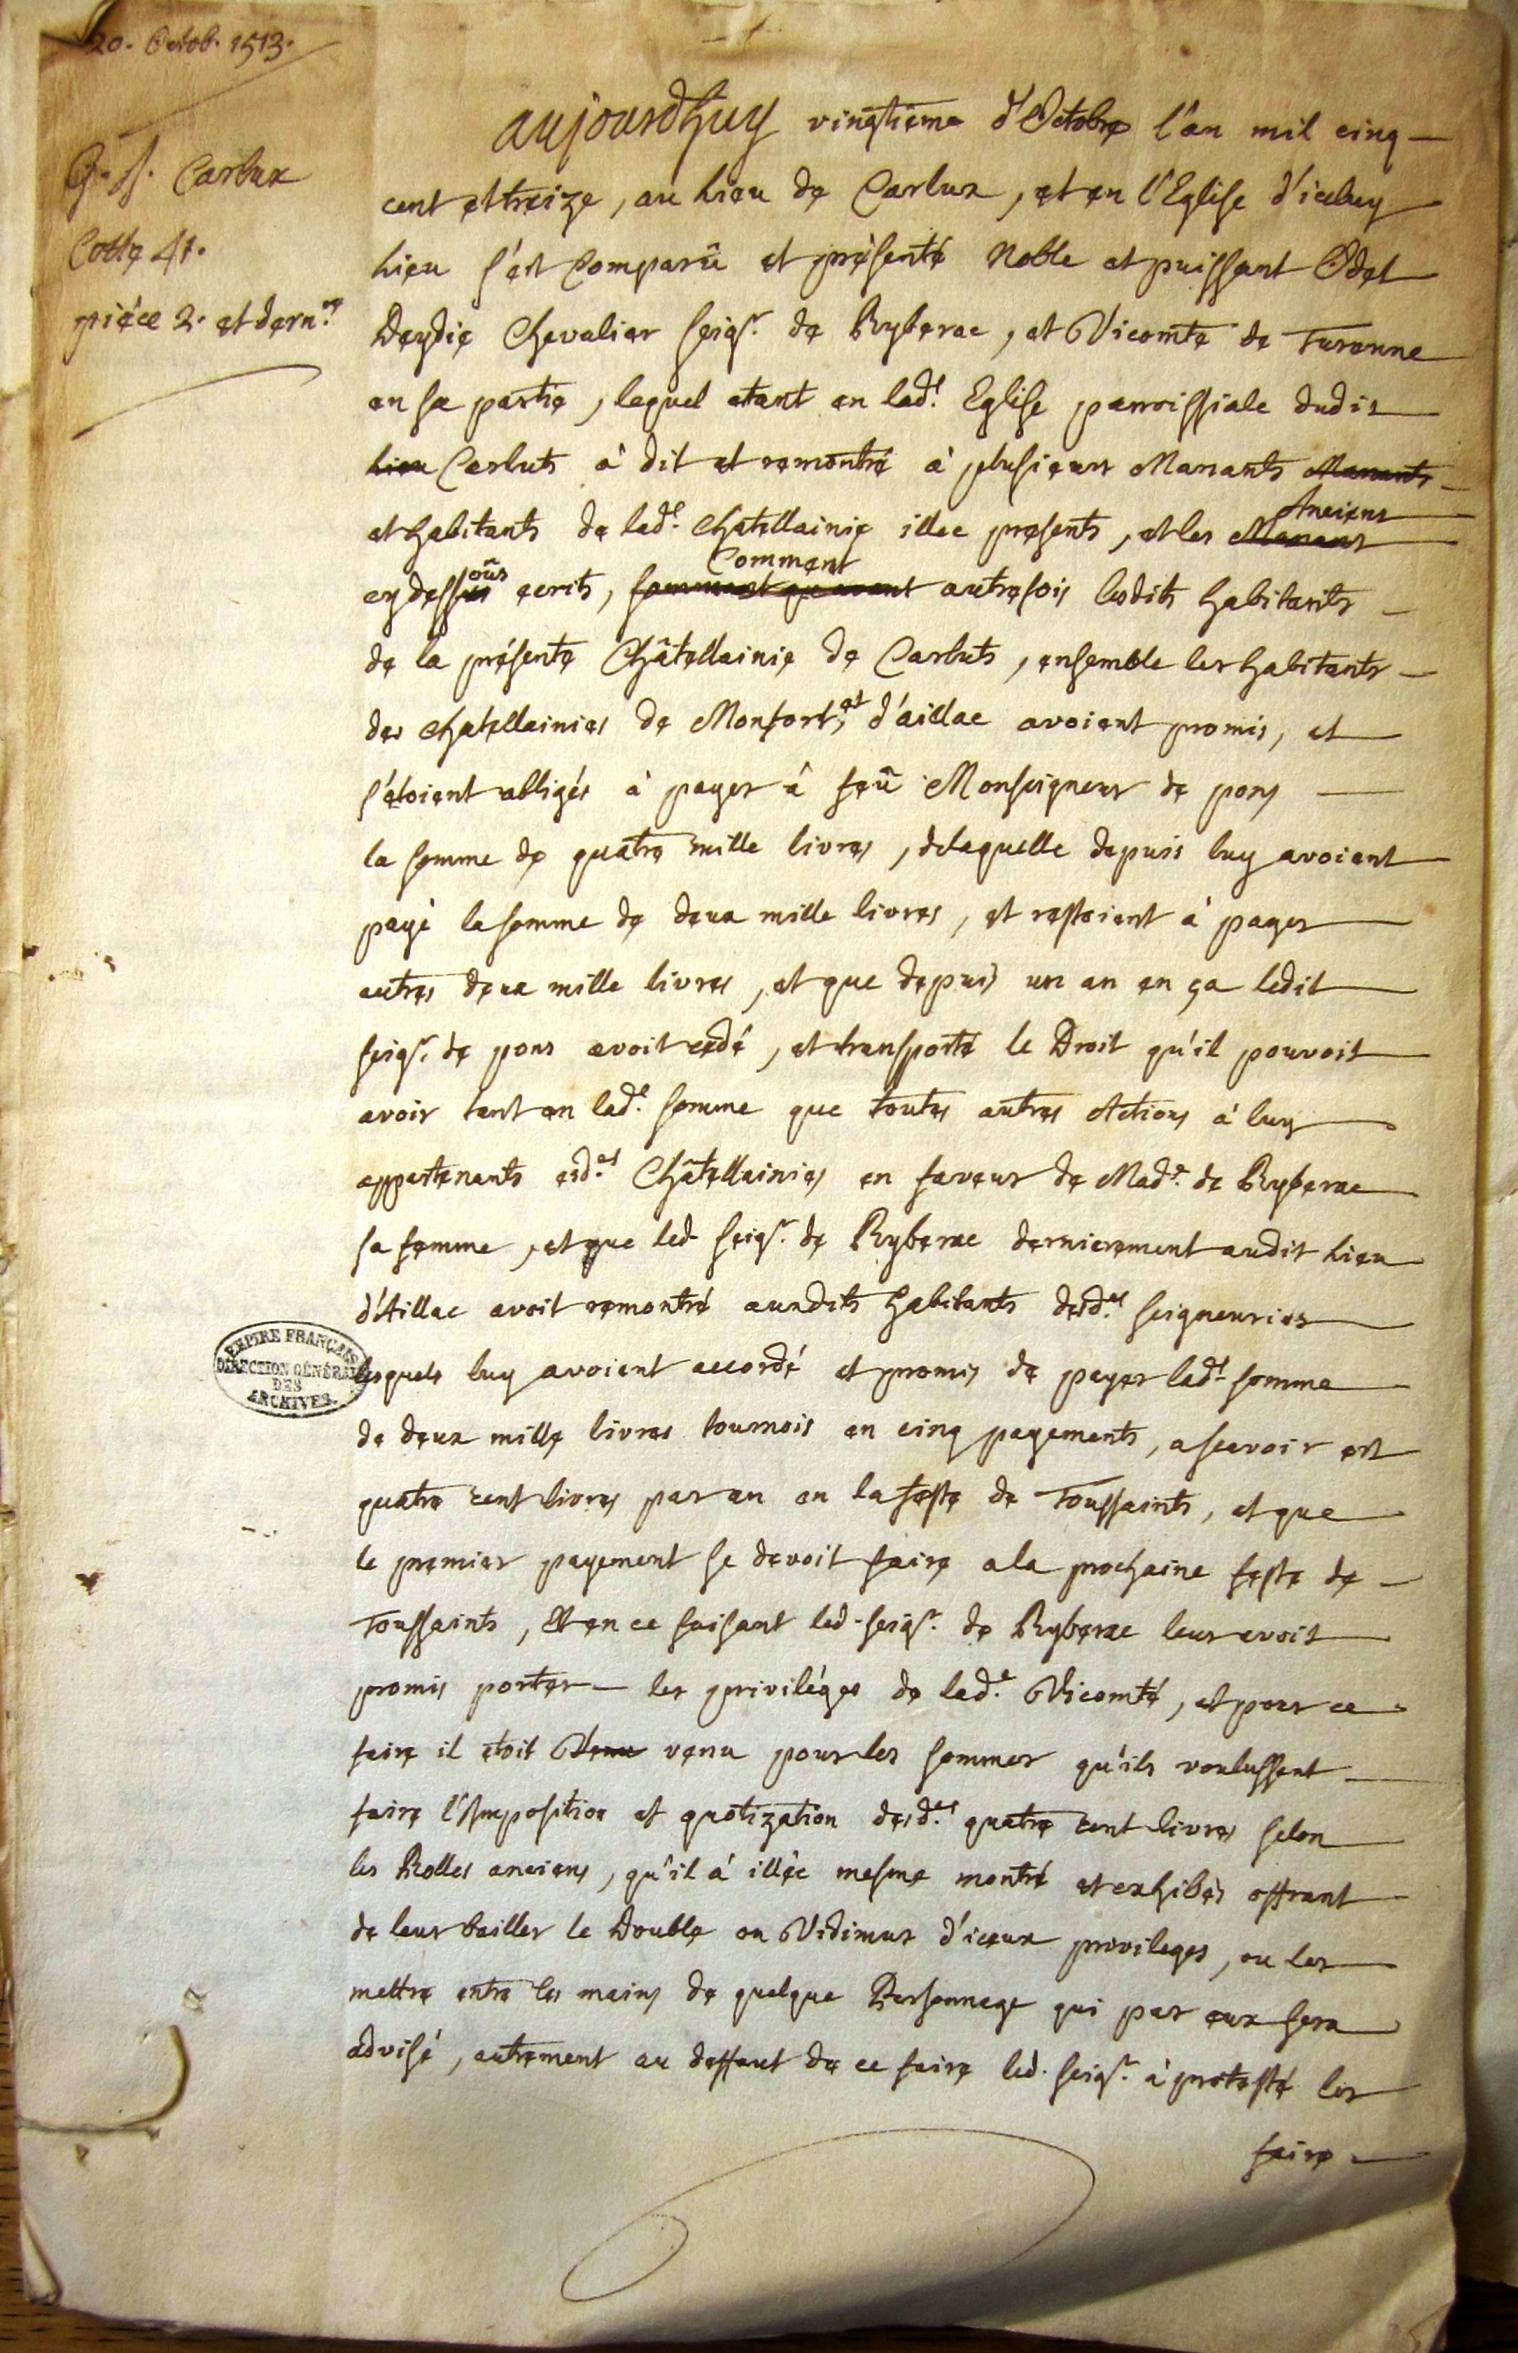 20. Octob. 1513.
G. S. Carlux
Cotte 41.
piéce 2. et dern.re
aujourdhuy vingtiéme d'Octobre l'an mil cinq
cent et treize, au lieu de Carlux, et en l'Eglise d'iceluy
lieu s'est Comparû et présenté Noble et puissant Odet
Deydie Chevalier seigr. de Ryberac, et Vicomte de Turenne
en sa partie, lequel etant en lade. Eglise parroissiale dudit
lieu Carluts à dit et remontré à plusieurs Manants Manants
Anciens
et habitants de lade. Chatellainie illec presents, et les Manans
Comment
cy dessous ecrits, autrefois lesdits habitants
de la présente Châtellainie de Carluts, ensemble les habitants
des chatellainies de Monfort, et d'aillac avoient promis, et
s'étoient obligés à payer à feû Monseigneur de pons
la somme de quatre mille livres, delaquelle depuis luy avoient
payé la somme de deux mille livres, et restoient à payer
autres deux mille livres, et que depuis un an en ça ledit
seigr. de pons avoit cedé, et transporté le Droit qu'il pouvoit
avoir tant en lade. somme que toutes autres Actions à luy
appartenants esd.es Châtellainies en faveur de Made. de Ryberac
sa femme, et que led. seigr. de Ryberac dernierement audit lieu
d'Aillac avoit remontré auxdits habitants desd.es seigneuries
lesquels luy avoient accordé et promis de payer lade. somme
de deux mille livres tournois en cinq payements, ascavoir est
quatre cent livres par an en la feste de Toussaints, et que
le premier payement se devoit faire a la prochaine feste de
Toussaints, Et en ce faisant led. seigr. de Ryberac leur avoit
promis porter les priviléges de lade. Vicomté, et pour ce
faire il etoit Venu venu pour les sommer qu'ils voulussent
faire l'Imposition et quotization desd.es quatre cent livres selon
les Rolles anciens, qu'il à illéc mesme montré et exhibés offrant
de leur bailler le Double ou Vidimus d'iceux privileges, ou les
mettre entre les mains de quelque Personnage qui par eux sera
advisé, autrement au deffaut de ce faire led. seigr. à protesté les
faire
EMPIRE FRANÇAIS
DIRECTION GÉNÉRALE
DES
ARCHIVES.